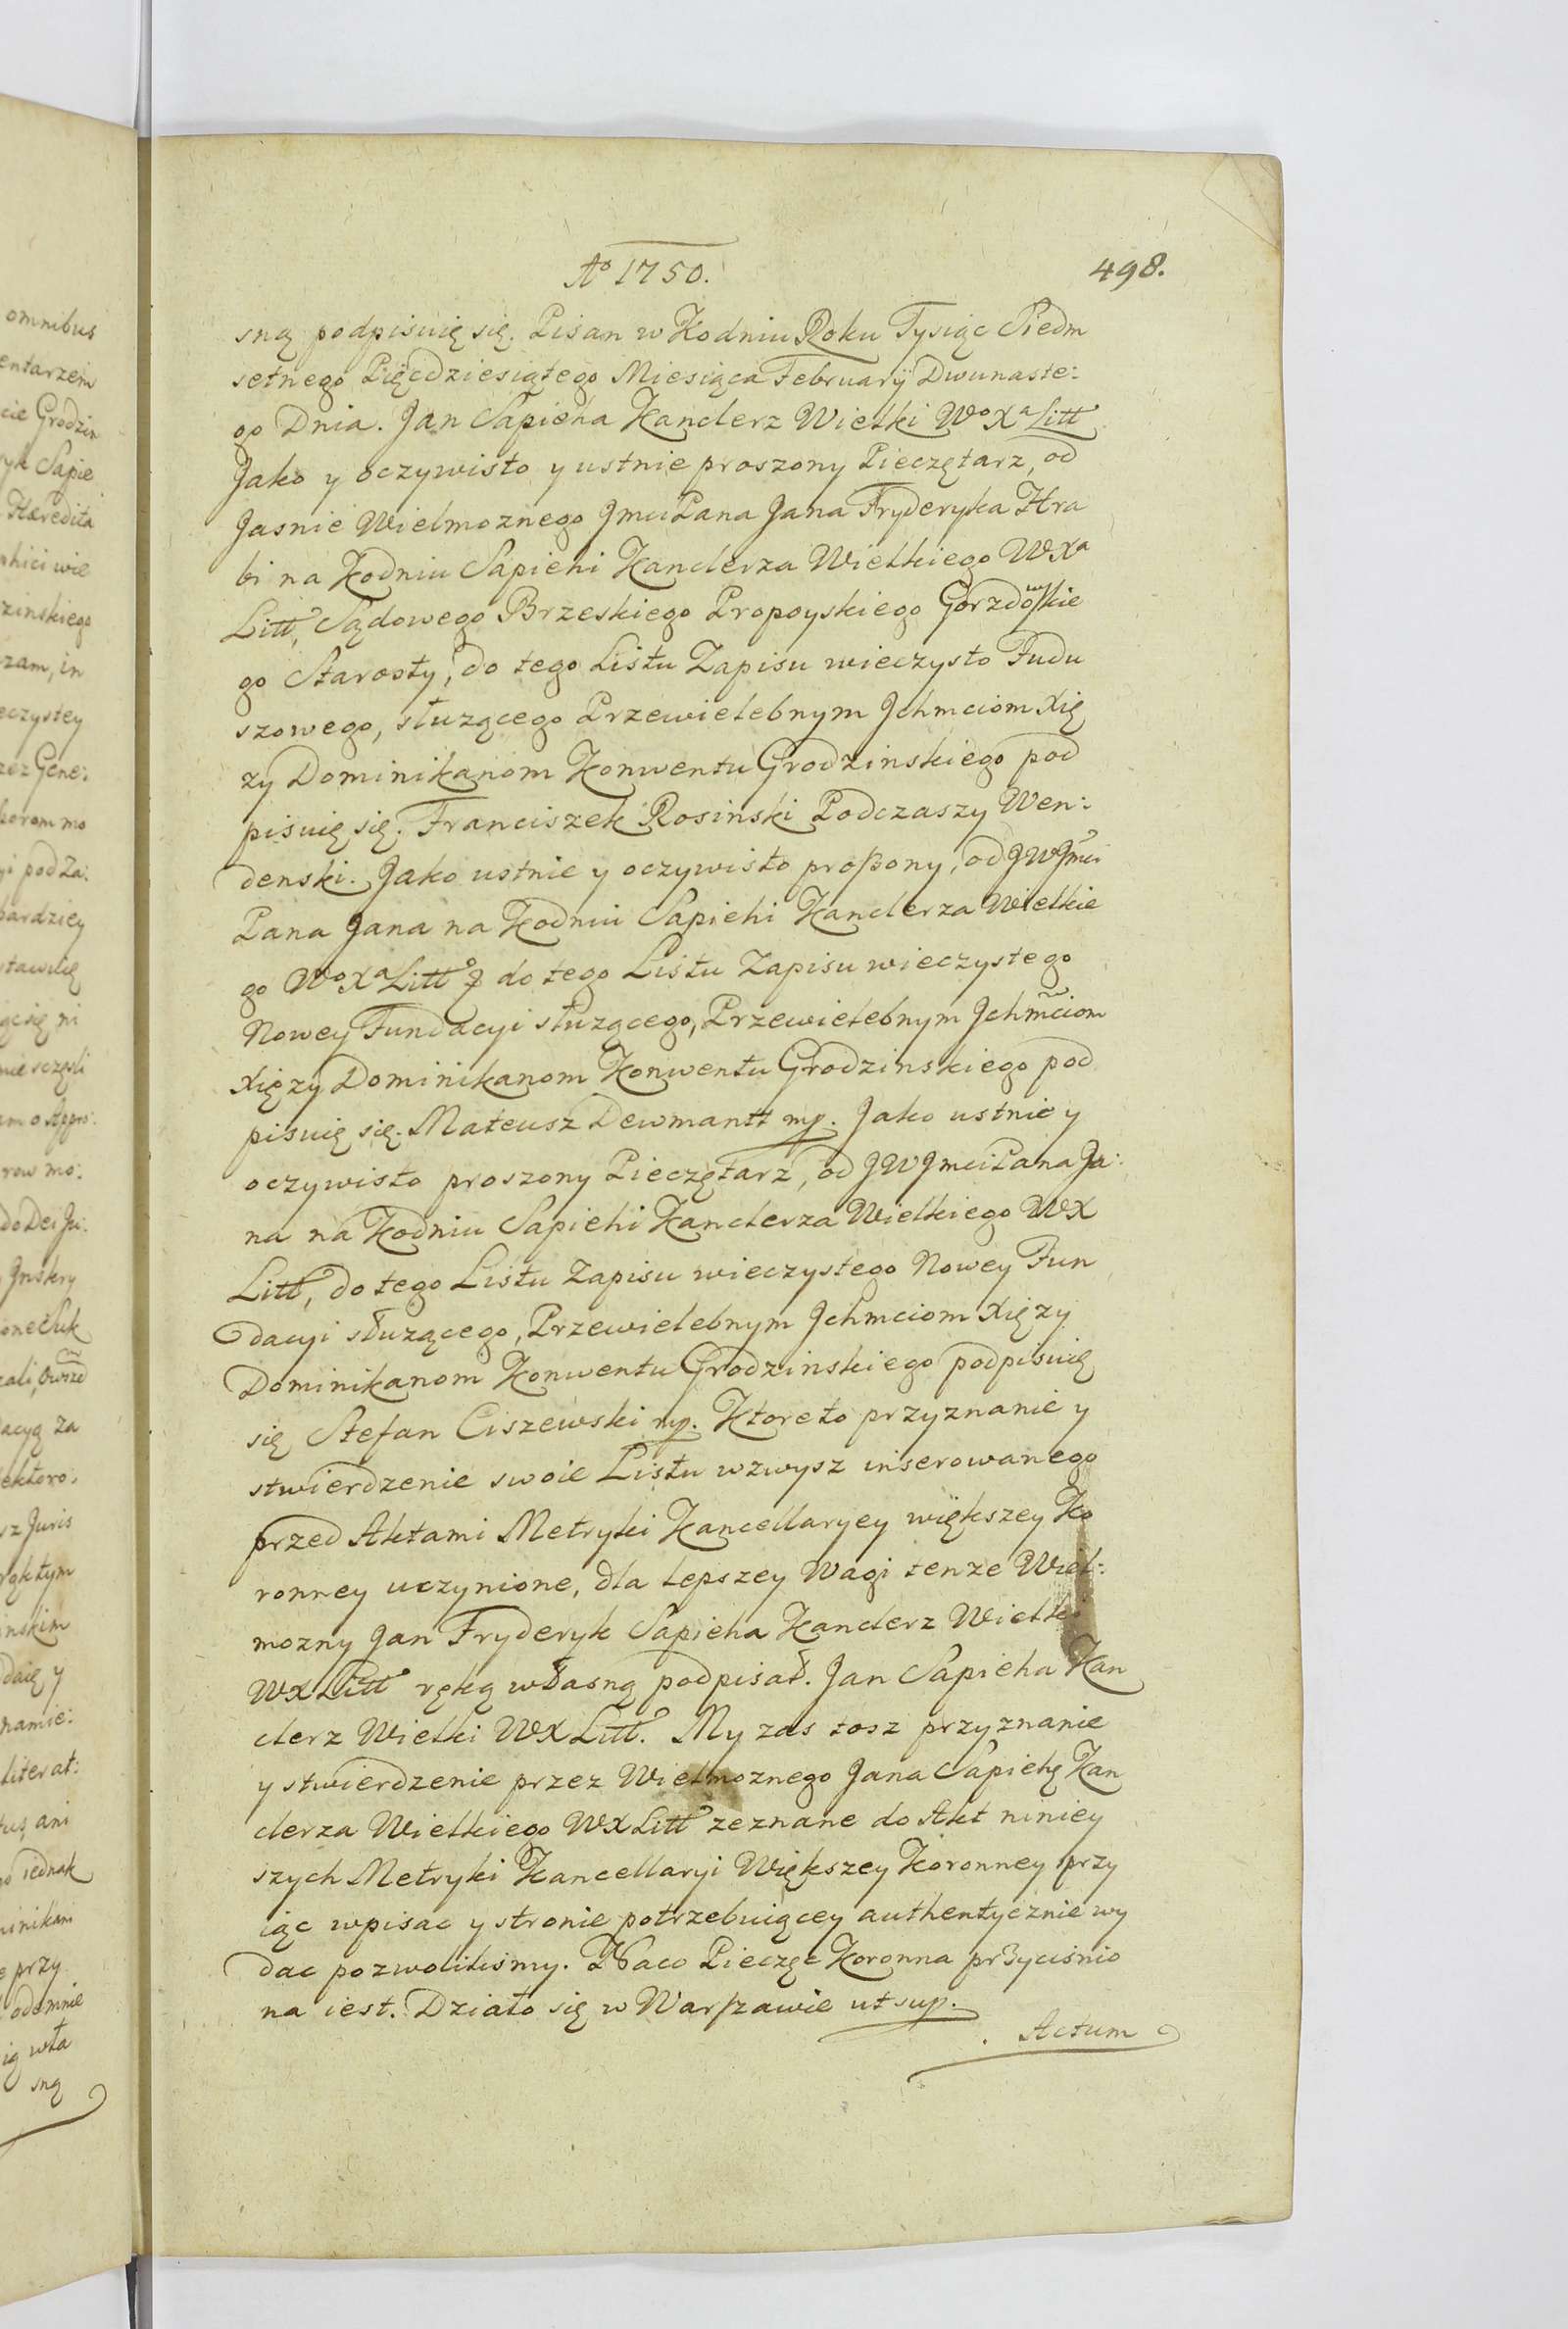 Aº 1750.
498.
sną podpisuię się. Pisan w Kodniu Roku Tysiąc Siedm
setnego Pięcdziesiątego Miesiąca February Dwunaste:
go Dnia. Jan Sapieha Kanclerz Wielki Wº Xª Litt
Jako y oczywisto y ustnie proszony Pieczętarz, od
Jasnie Wielmoznego Jmci Pana Jana Fryderyka Hra
bi na Kodniu Sapiehi Kanclerza Wielkiego WXª
Litt, Sądowego Brzeskiego Propoyskiego Gorzdowskie
go Starosty, do tego Listu Zapisu wieczysto Fudu
szowego, słuzącego Przewielebnym Jchmciom Xię
zy Dominikanom Konwentu Grodzinskiego pod
pisuię się. Franciszek Rosinski Podczaszy Wen:
denski. Jako ustnie y oczywisto proszony, od JWJmci
Pana Jana na Kodniu Sapiehi Kanclerza Wielkie
go Wº Xª Littº do tego Listu Zapisu wieczystego
Nowey Fundacyi słuzącego, Przewielebnym Jchmciom
Xięzy Dominikanom Konwentu Grodzinskiego pod
pisuię się. Mateusz Dewmantt mp. Jako ustnie y
oczywisto proszony Pieczętarz, od JWJmci Pana Ja:
na na Kodniu Sapiehi Kanclerza Wielkiego WX
Litt, do tego Listu Zapisu wieczystego Nowey Fun
dacyi słuzącego, Przewielebnym Jchmciom Xięzy
Dominikanom Konwentu Grodzinskiego podpisuię
się Stefan Ciszewski mp. Ktore to przyznanie y
stwierdzenie swoie Listu wzwysz inserowanego
przed Aktami Metryki Kancellaryey większey Ko
ronney uczynione, dla lepszey Wagi tenze Wiel:
mozny Jan Fryderyk Sapieha Kanclerz Wielki
WX Litt ręką własną podpisał. Jan Sapieha Kan
clerz Wielki WX Litt. My zas tosz przyznanie
y stwierdzenie przez Wielmoznego Jana Sapiehę Kan
clerza Wielkiego WX Litt zeznane do Akt niniey
szych Metryki Kancellaryi Większey Koronney przy
iąc wpisac y stronie potrzebuiącey authentycznie wy
dac pozwolilismy. Naco Pieczęc Koronna przycisnio
na iest. Działo się w Warszawie ut sup.
Actum